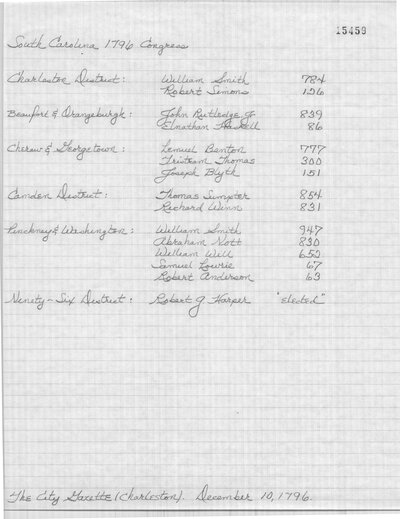 15459
South Carolina 1796 Congress
Charleston District: William Smith 784
Robert Simons 126
Beaufort & Orangeburgh: John Rutledge Jr 839
Elnathan Haskell 86
Cheraw & Georgetown: Lemuel Benton 777
Tristram Thomas 300
Joseph Blyth 151
Camden District: Thomas Sumpter 854
Richard Winn 831
Pinckney & Washington: William Smith 947
Abraham Nott 830
William Will 650
Samuel Lowrie 67
Robert Anderson 63
Ninety-Six District: Robert G Harper "elected"
The City Gazette (Charleston). December 10, 1796.